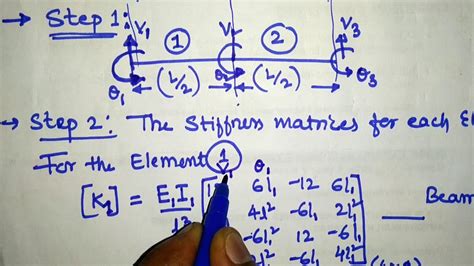 → Step 1:
V₁ V₂ V₃
1 2
θ₁ (L/2) θ₂ (L/2) θ₃
→ Step 2: The Stiffness matrices for each
For the Element 1
θ₁
[K₁] = E₁I₁ 6l₁ -12 6l₁
4l₁² -6l₁ 2l₁² Beam
-6l₁ 12 -6l₁
-6l₁ 4l₁²